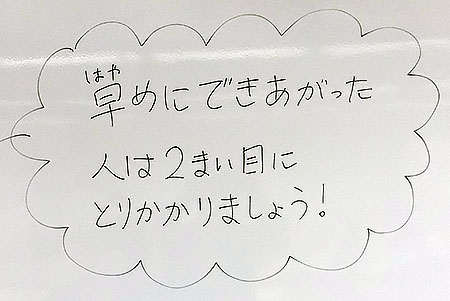 はや
早めにできあがった
人は2まい目に
とりかかりましょう!